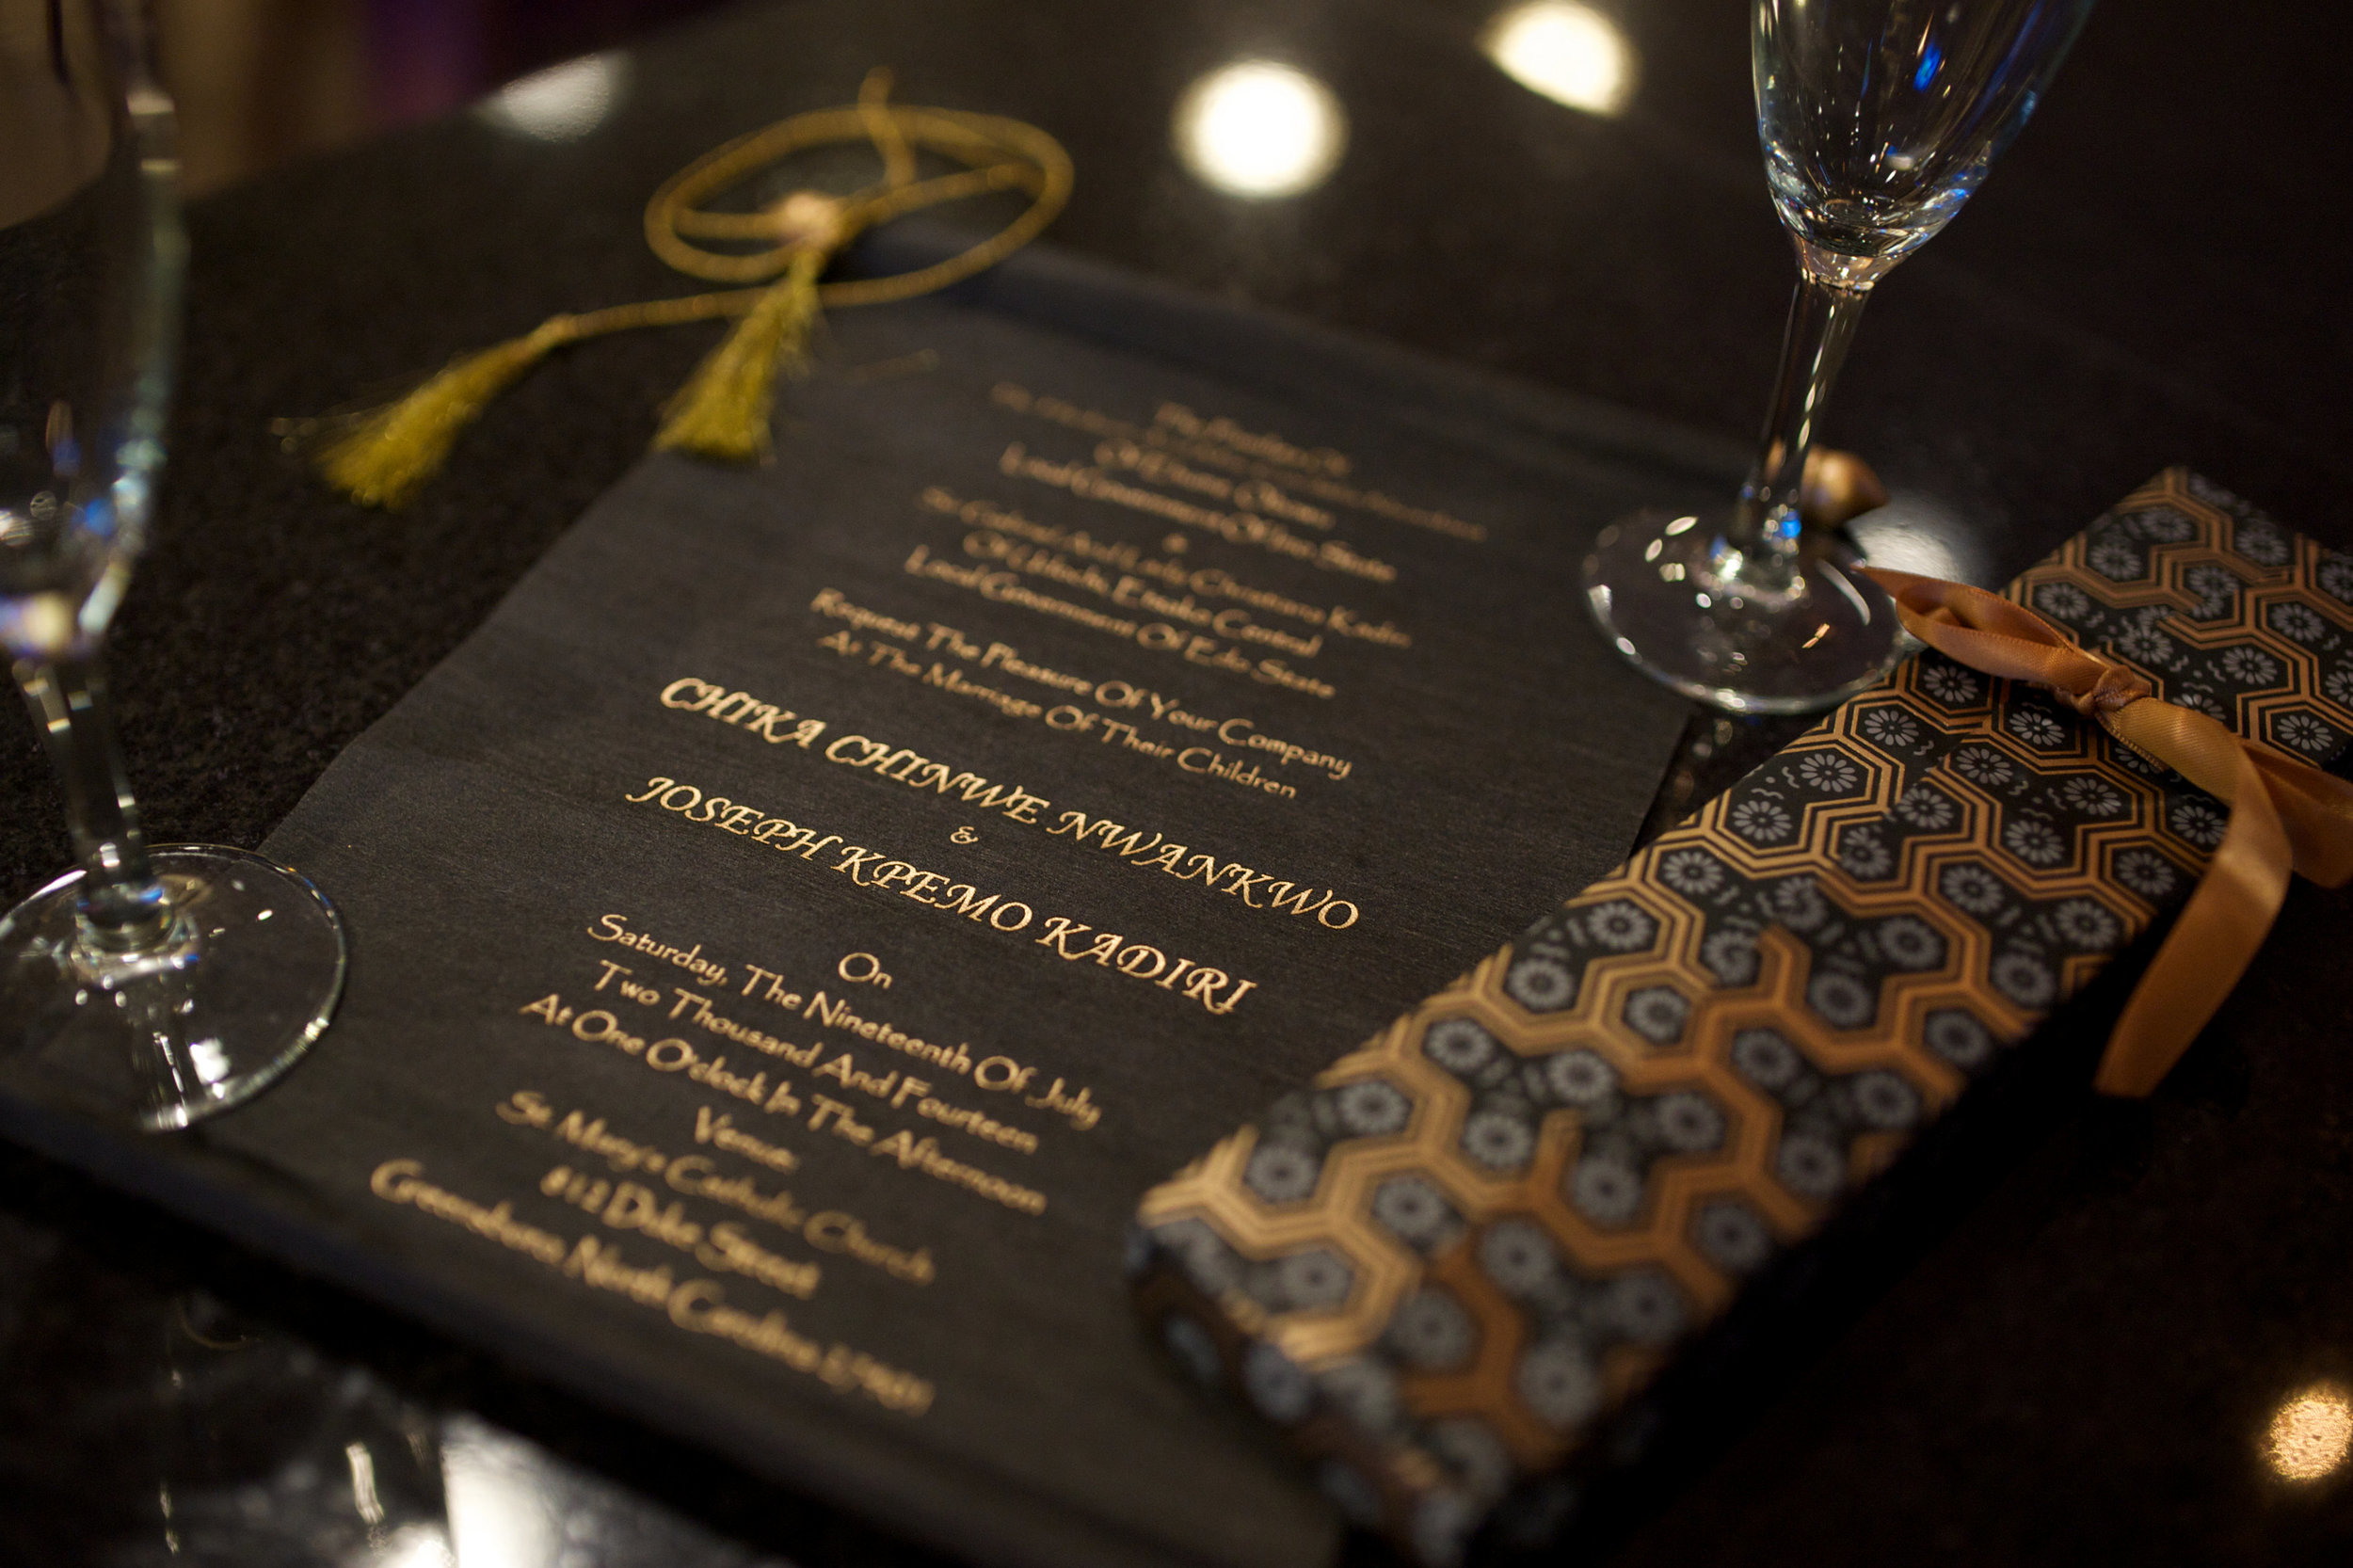 Local Government Of Imo State
&
Sir Gabriel And Lady Christiana Kadiri
Of Esako Central
Local Government Of Edo State
Request The Pleasure Of Your Company
At The Marriage Of Their Children
CHIKA CHINWE NWANKWO
&
JOSEPH KPEMO KADIRI
On
Saturday, The Nineteenth Of July
Two Thousand And Fourteen
At One O'clock In The Afternoon
Venue:
St. Mary's Catholic Church
812 Duke Street
Greensboro, North Carolina